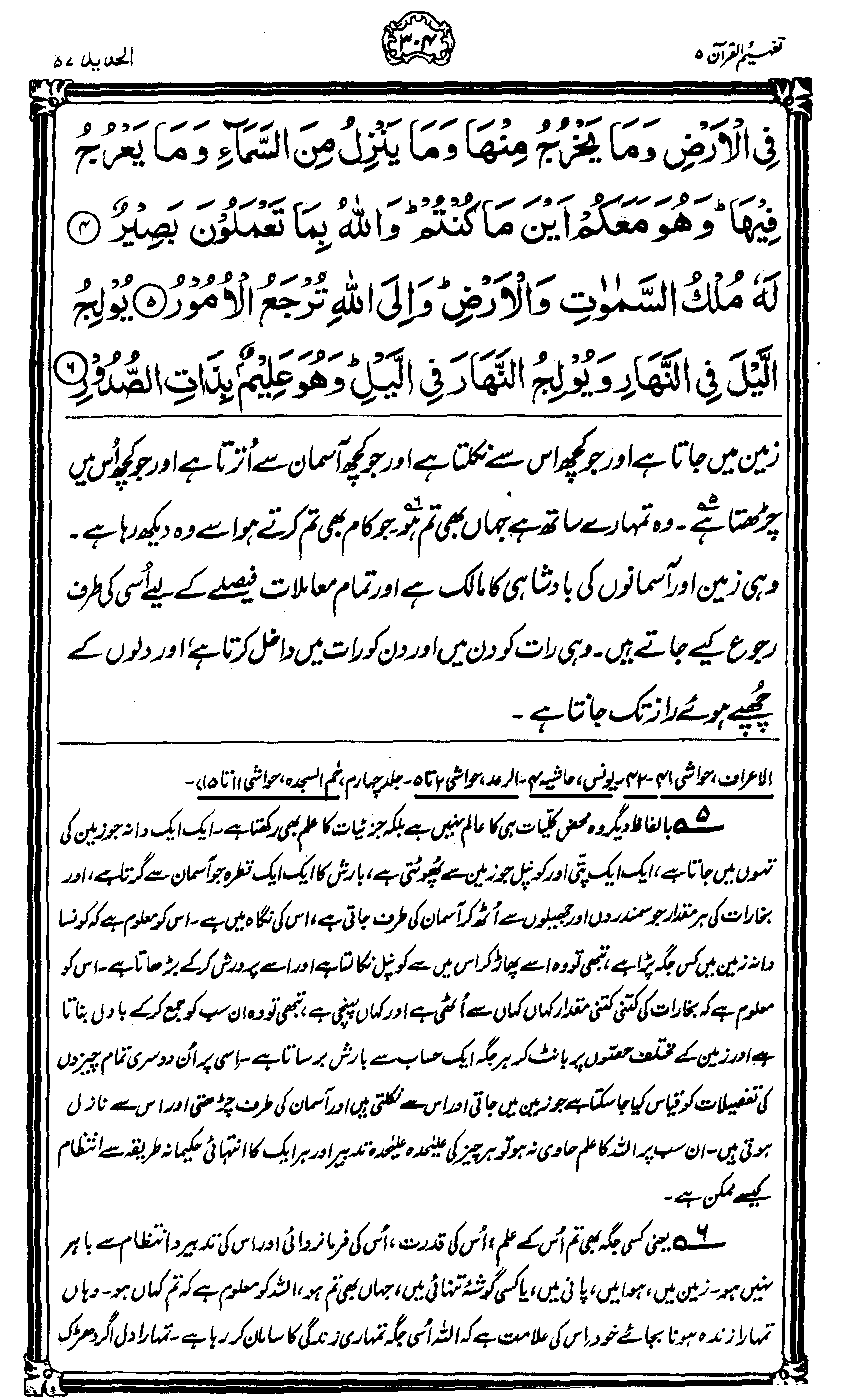 تفہیم القرآن ۵
۳۰۴
الحدید ۵۷
فِي الْاَرْضِ وَمَا يَخْرُجُ مِنْهَا وَمَا يَنْزِلُ مِنَ السَّمَآءِ وَمَا يَعْرُجُ
فِيْهَا ؕ وَهُوَ مَعَكُمْ اَيْنَ مَا كُنْتُمْ ؕ وَاللّٰهُ بِمَا تَعْمَلُوْنَ بَصِيْرٌ ۝۴
لَهٗ مُلْكُ السَّمٰوٰتِ وَالْاَرْضِ ؕ وَاِلَى اللّٰهِ تُرْجَعُ الْاُمُوْرُ ۝۵ يُوْلِجُ
الَّيْلَ فِي النَّهَارِ وَيُوْلِجُ النَّهَارَ فِي الَّيْلِ ؕ وَهُوَ عَلِيْمٌۢ بِذَاتِ الصُّدُوْرِ ۝۶
زمین میں جاتا ہے اور جو کچھ اس سے نکلتا ہے اور جو کچھ آسمان سے اُترتا ہے اور جو کچھ اُس میں
چڑھتا ہے۵۔ وہ تمہارے ساتھ ہے جہاں بھی تم ہو۶۔ جو کام بھی تم کرتے ہو اسے وہ دیکھ رہا ہے۔
وہی زمین اور آسمانوں کی بادشاہی کا مالک ہے اور تمام معاملات فیصلے کے لیے اُسی کی طرف
رجوع کیے جاتے ہیں۔ وہی رات کو دن میں اور دن کو رات میں داخل کرتا ہے، اور دلوں کے
چُھپے ہوئے راز تک جانتا ہے۔
الاعراف، حواشی ۴۱-۴۲۔ یونس، حاشیہ ۴۔ الرعد، حواشی ۲ تا ۵۔ جلد چہارم، حٰم السجدہ، حواشی ۱۱ تا ۱۵)۔
۵ بالفاظ دیگر وہ محض کلیات ہی کا عالم نہیں ہے بلکہ جزئیات کا علم بھی رکھتا ہے۔ ایک ایک دانہ جو زمین کی
تہوں میں جاتا ہے، ایک ایک پتی اور کونپل جو زمین سے پھوٹتی ہے، بارش کا ایک ایک قطرہ جو آسمان سے گرتا ہے، اور
بخارات کی ہر مقدار جو سمندروں اور جھیلوں سے اُٹھ کر آسمان کی طرف جاتی ہے، اس کی نگاہ میں ہے۔ اس کو معلوم ہے کہ کونسا
دانہ زمین میں کس جگہ پڑا ہے، تبھی تو وہ اسے پھاڑ کر اس میں سے کونپل نکالتا ہے اور اسے پرورش کر کے بڑھاتا ہے۔ اس کو
معلوم ہے کہ بخارات کی کتنی کتنی مقدار کہاں کہاں سے اُٹھی ہے اور کہاں پہنچی ہے، تبھی تو وہ ان سب کو جمع کر کے بادل بناتا
ہے اور زمین کے مختلف حصوں پر بانٹ کر ہر جگہ ایک حساب سے بارش برساتا ہے۔ اسی پر اُن دوسری تمام چیزوں
کی تفصیلات کو قیاس کیا جا سکتا ہے جو زمین میں جاتی اور اس سے نکلتی ہیں اور آسمان کی طرف چڑھتی اور اس سے نازل
ہوتی ہیں۔ ان سب پر اللہ کا علم حاوی نہ ہو تو ہر چیز کی علیٰحدہ علیٰحدہ تدبیر اور ہر ایک کا انتہائی حکیمانہ طریقہ سے انتظام
کیسے ممکن ہے۔
۶ یعنی کسی جگہ بھی تم اُس کے علم، اُس کی قدرت، اُس کی فرمانروائی اور اس کی تدبیر و انتظام سے باہر
نہیں ہو۔ زمین میں، ہوا میں، پانی میں، یا کسی گوشۂ تنہائی میں، جہاں بھی تم ہو، اللہ کو معلوم ہے کہ تم کہاں ہو۔ وہاں
تمہارا زندہ ہونا بجائے خود اس کی علامت ہے کہ اللہ اسی جگہ تمہاری زندگی کا سامان کر رہا ہے۔ تمہارا دل اگر دھڑک